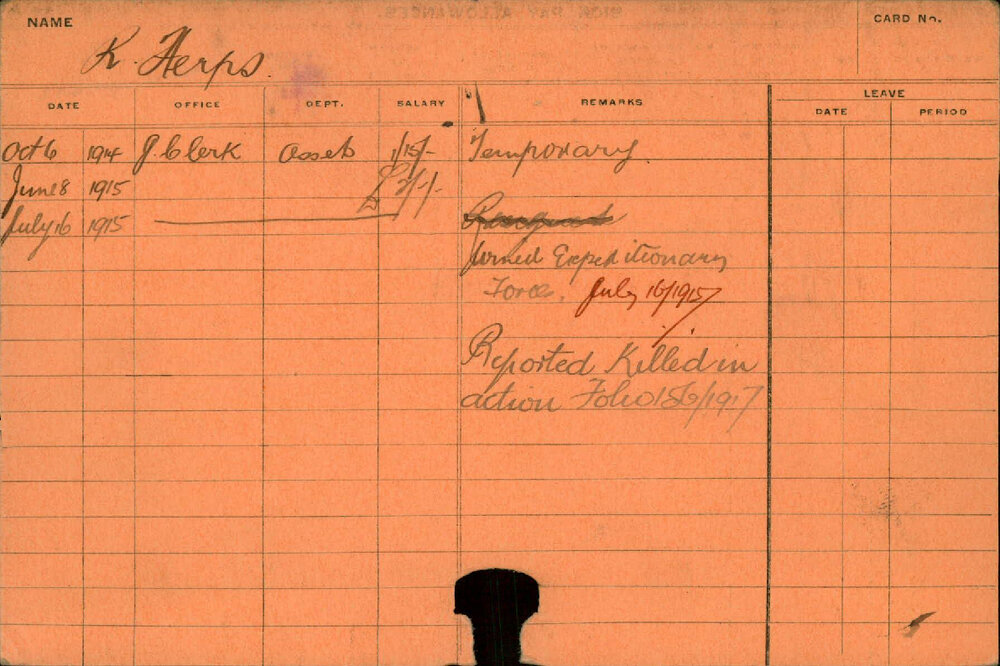 NAME
CARD No.
K. Herps.
DATE OFFICE DEPT. SALARY REMARKS LEAVE
DATE PERIOD
Oct 6 1914 J. Clerk Assets 1/15/- Temporary.
June 8 1915 £2/-/-
July 16 1915
Resigned
Joined Expeditionary
Force. July 16/1915
Reported Killed in
action Folio 156/1917